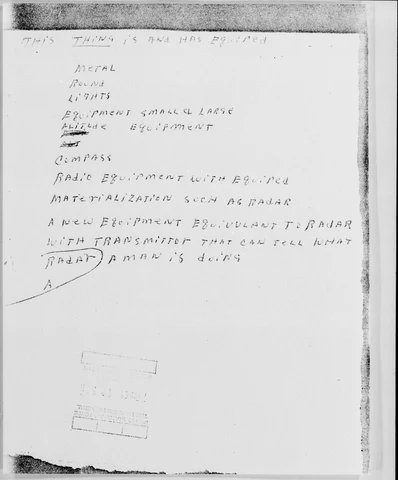 THIS THING IS AND HAS EQUIPED
METAL
ROUND
LIGHTS
EQUIPMENT SMALL & LARGE
ALITUDE EQUIPMENT
COMPASS
RADIO EQUIPMENT WITH EQUIPED
MATERIALIZATION SUCH AS RADAR
A NEW EQUIPMENT EQUIVULANT TO RADAR
WITH TRANSMITTOR THAT CAN TELL WHAT
RADAR A MAN IS DOING
A